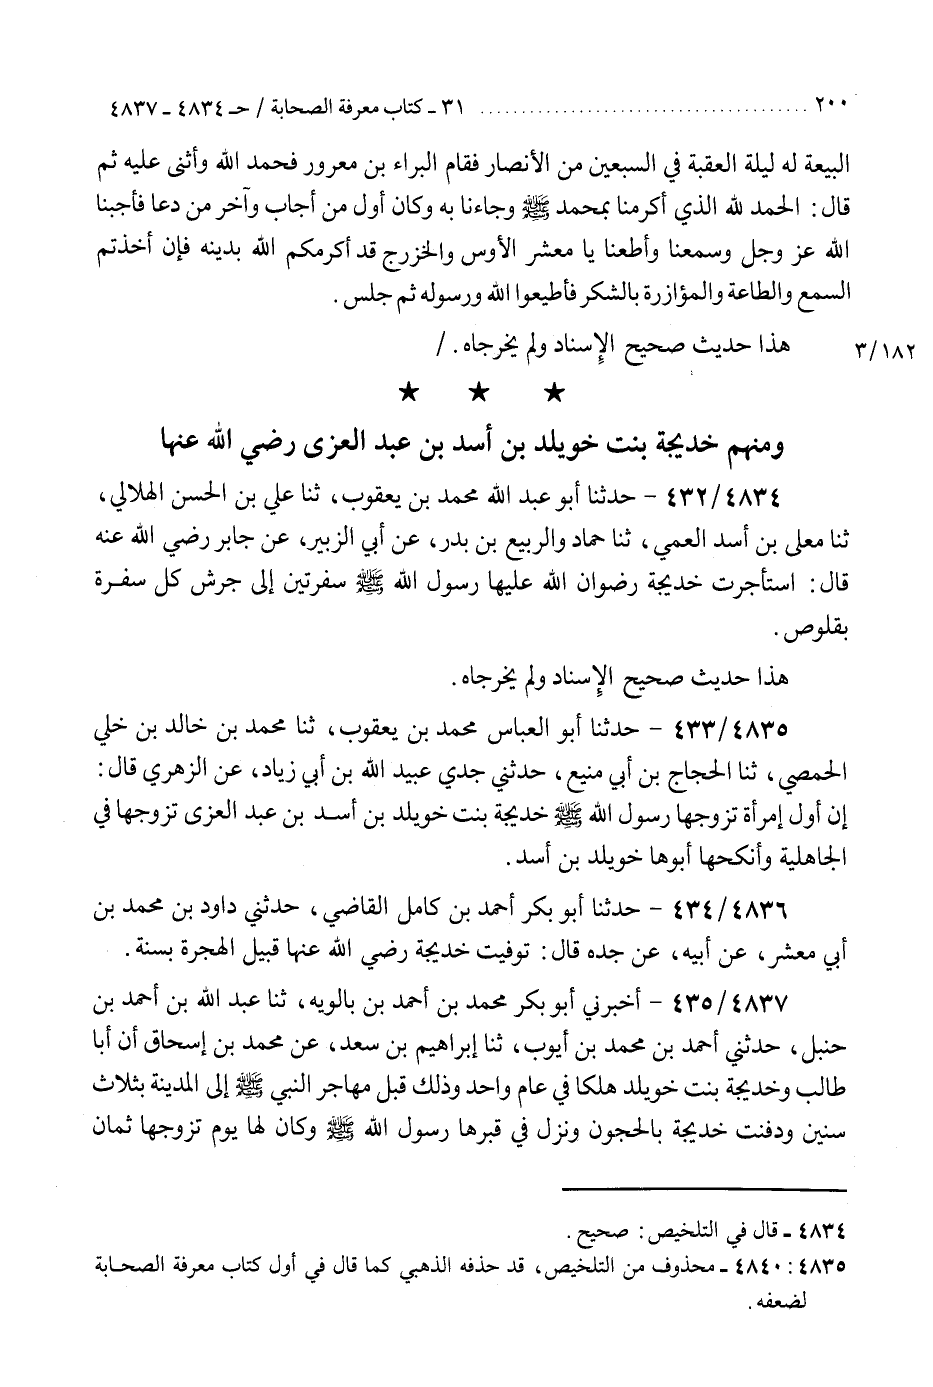 ٢٠٠ ........................................ ٣١ ـ كتاب معرفة الصحابة / حـ ٤٨٣٤ ـ ٤٨٣٧
البيعة له ليلة العقبة في السبعين من الأنصار فقام البراء بن معرور فحمد الله وأثنى عليه ثم
قال: الحمد لله الذي أكرمنا بمحمد ﷺ وجاءنا به وكان أول من أجاب وآخر من دعا فأجبنا
الله عز وجل وسمعنا وأطعنا يا معشر الأوس والخزرج قد أكرمكم الله بدينه فإن أخذتم
السمع والطاعة والمؤازرة بالشكر فأطيعوا الله ورسوله ثم جلس.
هذا حديث صحيح الإسناد ولم يخرجاه. / ٣/١٨٢
★ ★ ★
ومنهم خديجة بنت خويلد بن أسد بن عبد العزى رضي الله عنها
٤٣٢/٤٨٣٤ - حدثنا أبو عبد الله محمد بن يعقوب، ثنا علي بن الحسن الهلالي،
ثنا معلى بن أسد العمي، ثنا حماد والربيع بن بدر، عن أبي الزبير، عن جابر رضي الله عنه
قال: استأجرت خديجة رضوان الله عليها رسول الله ﷺ سفرتين إلى جرش كل سفرة
بقلوص.
هذا حديث صحيح الإسناد ولم يخرجاه.
٤٣٣/٤٨٣٥ - حدثنا أبو العباس محمد بن يعقوب، ثنا محمد بن خالد بن خلي
الحمصي، ثنا الحجاج بن أبي منيع، حدثني جدي عبيد الله بن أبي زياد، عن الزهري قال:
إن أول إمرأة تزوجها رسول الله ﷺ خديجة بنت خويلد بن أسد بن عبد العزى تزوجها في
الجاهلية وأنكحها أبوها خويلد بن أسد.
٤٣٤/٤٨٣٦ - حدثنا أبو بكر أحمد بن كامل القاضي، حدثني داود بن محمد بن
أبي معشر، عن أبيه، عن جده قال: توفيت خديجة رضي الله عنها قبيل الهجرة بسنة.
٤٣٥/٤٨٣٧ - أخبرني أبو بكر محمد بن أحمد بن بالويه، ثنا عبد الله بن أحمد بن
حنبل، حدثني أحمد بن محمد بن أيوب، ثنا إبراهيم بن سعد، عن محمد بن إسحاق أن أبا
طالب وخديجة بنت خويلد هلكا في عام واحد وذلك قبل مهاجر النبي ﷺ إلى المدينة بثلاث
سنين ودفنت خديجة بالحجون ونزل في قبرها رسول الله ﷺ وكان لها يوم تزوجها ثمان
٤٨٣٤ ـ قال في التلخيص: صحيح.
٤٨٣٥: ٤٨٤٠ ـ محذوف من التلخيص، قد حذفه الذهبي كما قال في أول كتاب معرفة الصحابة
لضعفه.